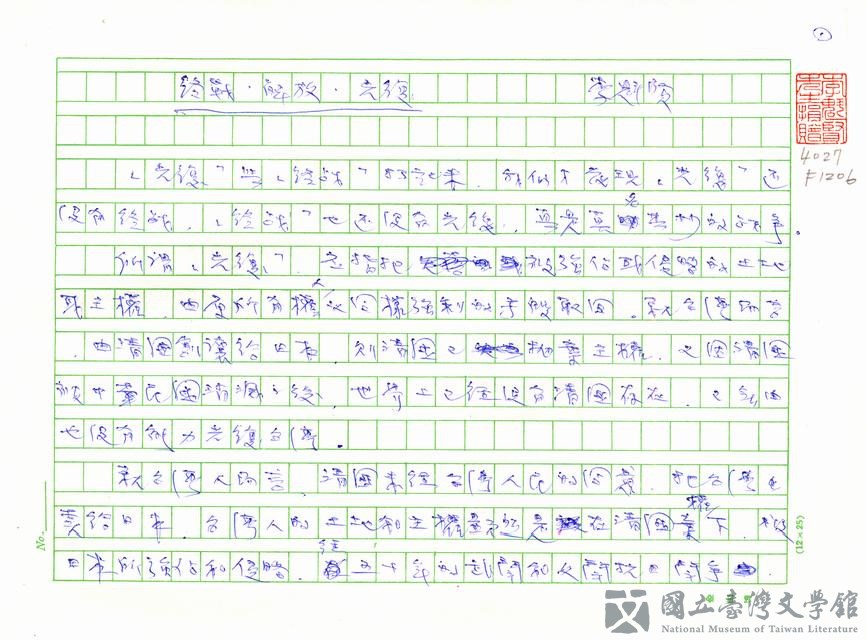 終戰．解放．光復 李魁賢
「光復」與「終戰」對起來，我們才發現，「光復」也
沒有終戰，「終戰」也還沒有光復，真是莫名其妙的戰爭。
所謂「光復」，是指把被強佔或侵略的土地
或主權，由原所有權人以同樣強制的手段取回。就台灣而言
，由清國割讓給日本，則清國已拋棄主權，又因清國
被中華民國消滅之後，世界上已經沒有清國存在，自然
也沒有能力光復台灣。
就台灣人而言，清國未經台灣人民的同意，把台灣出
賣給日本，台灣人的土地和主權是在清國棄權下，被
日本所強佔和侵略。經五十年的武鬥和文鬥抗日鬥爭
4027
F1206
No.
(12×25)
國立臺灣文學館
National Museum of Taiwan Literature